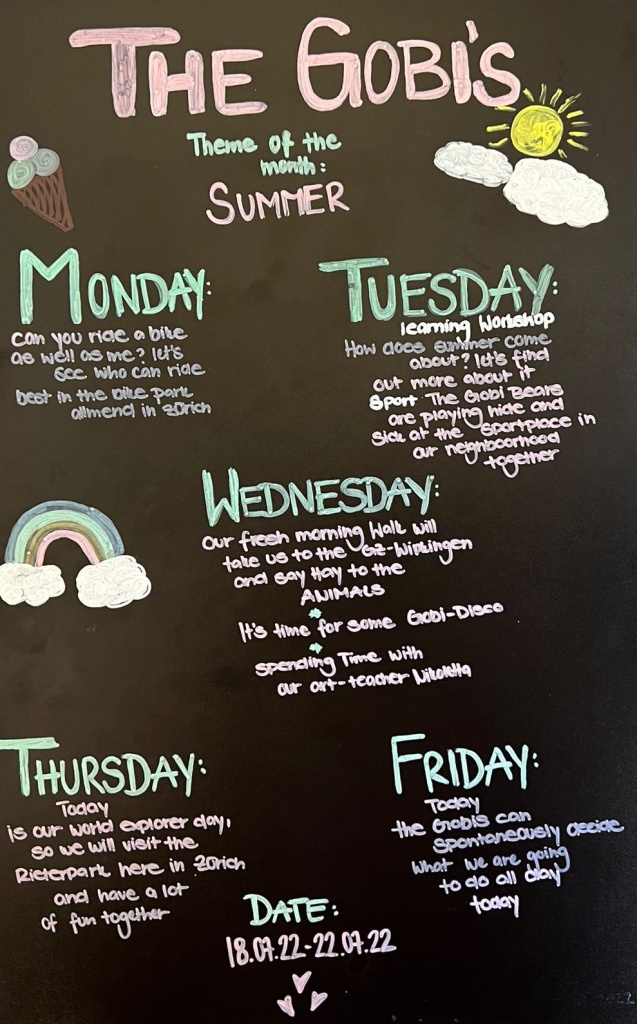 THE GOBI'S
Theme of the
month:
SUMMER
MONDAY:
can you ride a bike
as well as me? let's
see who can ride
best in the bike park
allmend in Zürich
TUESDAY:
learning Workshop
How does summer come
about? let's find
out more about it
Sport The Gobi Bears
are playing hide and
sick at the sportplace in
our neighboorhood
together
WEDNESDAY:
Our fresh morning Walk will
take us to the GZ-Wipkingen
and say Hay to the
ANIMALS
It's time for some Gobi-Disco
spending Time with
our art-teacher Nikoletta
THURSDAY:
Today
is our world explorer day,
so we will visit the
Rieterpark here in Zürich
and have a lot
of fun together
FRIDAY:
Today
the Gobis can
spontaneously decide
what we are going
to do all day
today
DATE:
18.07.22-22.07.22